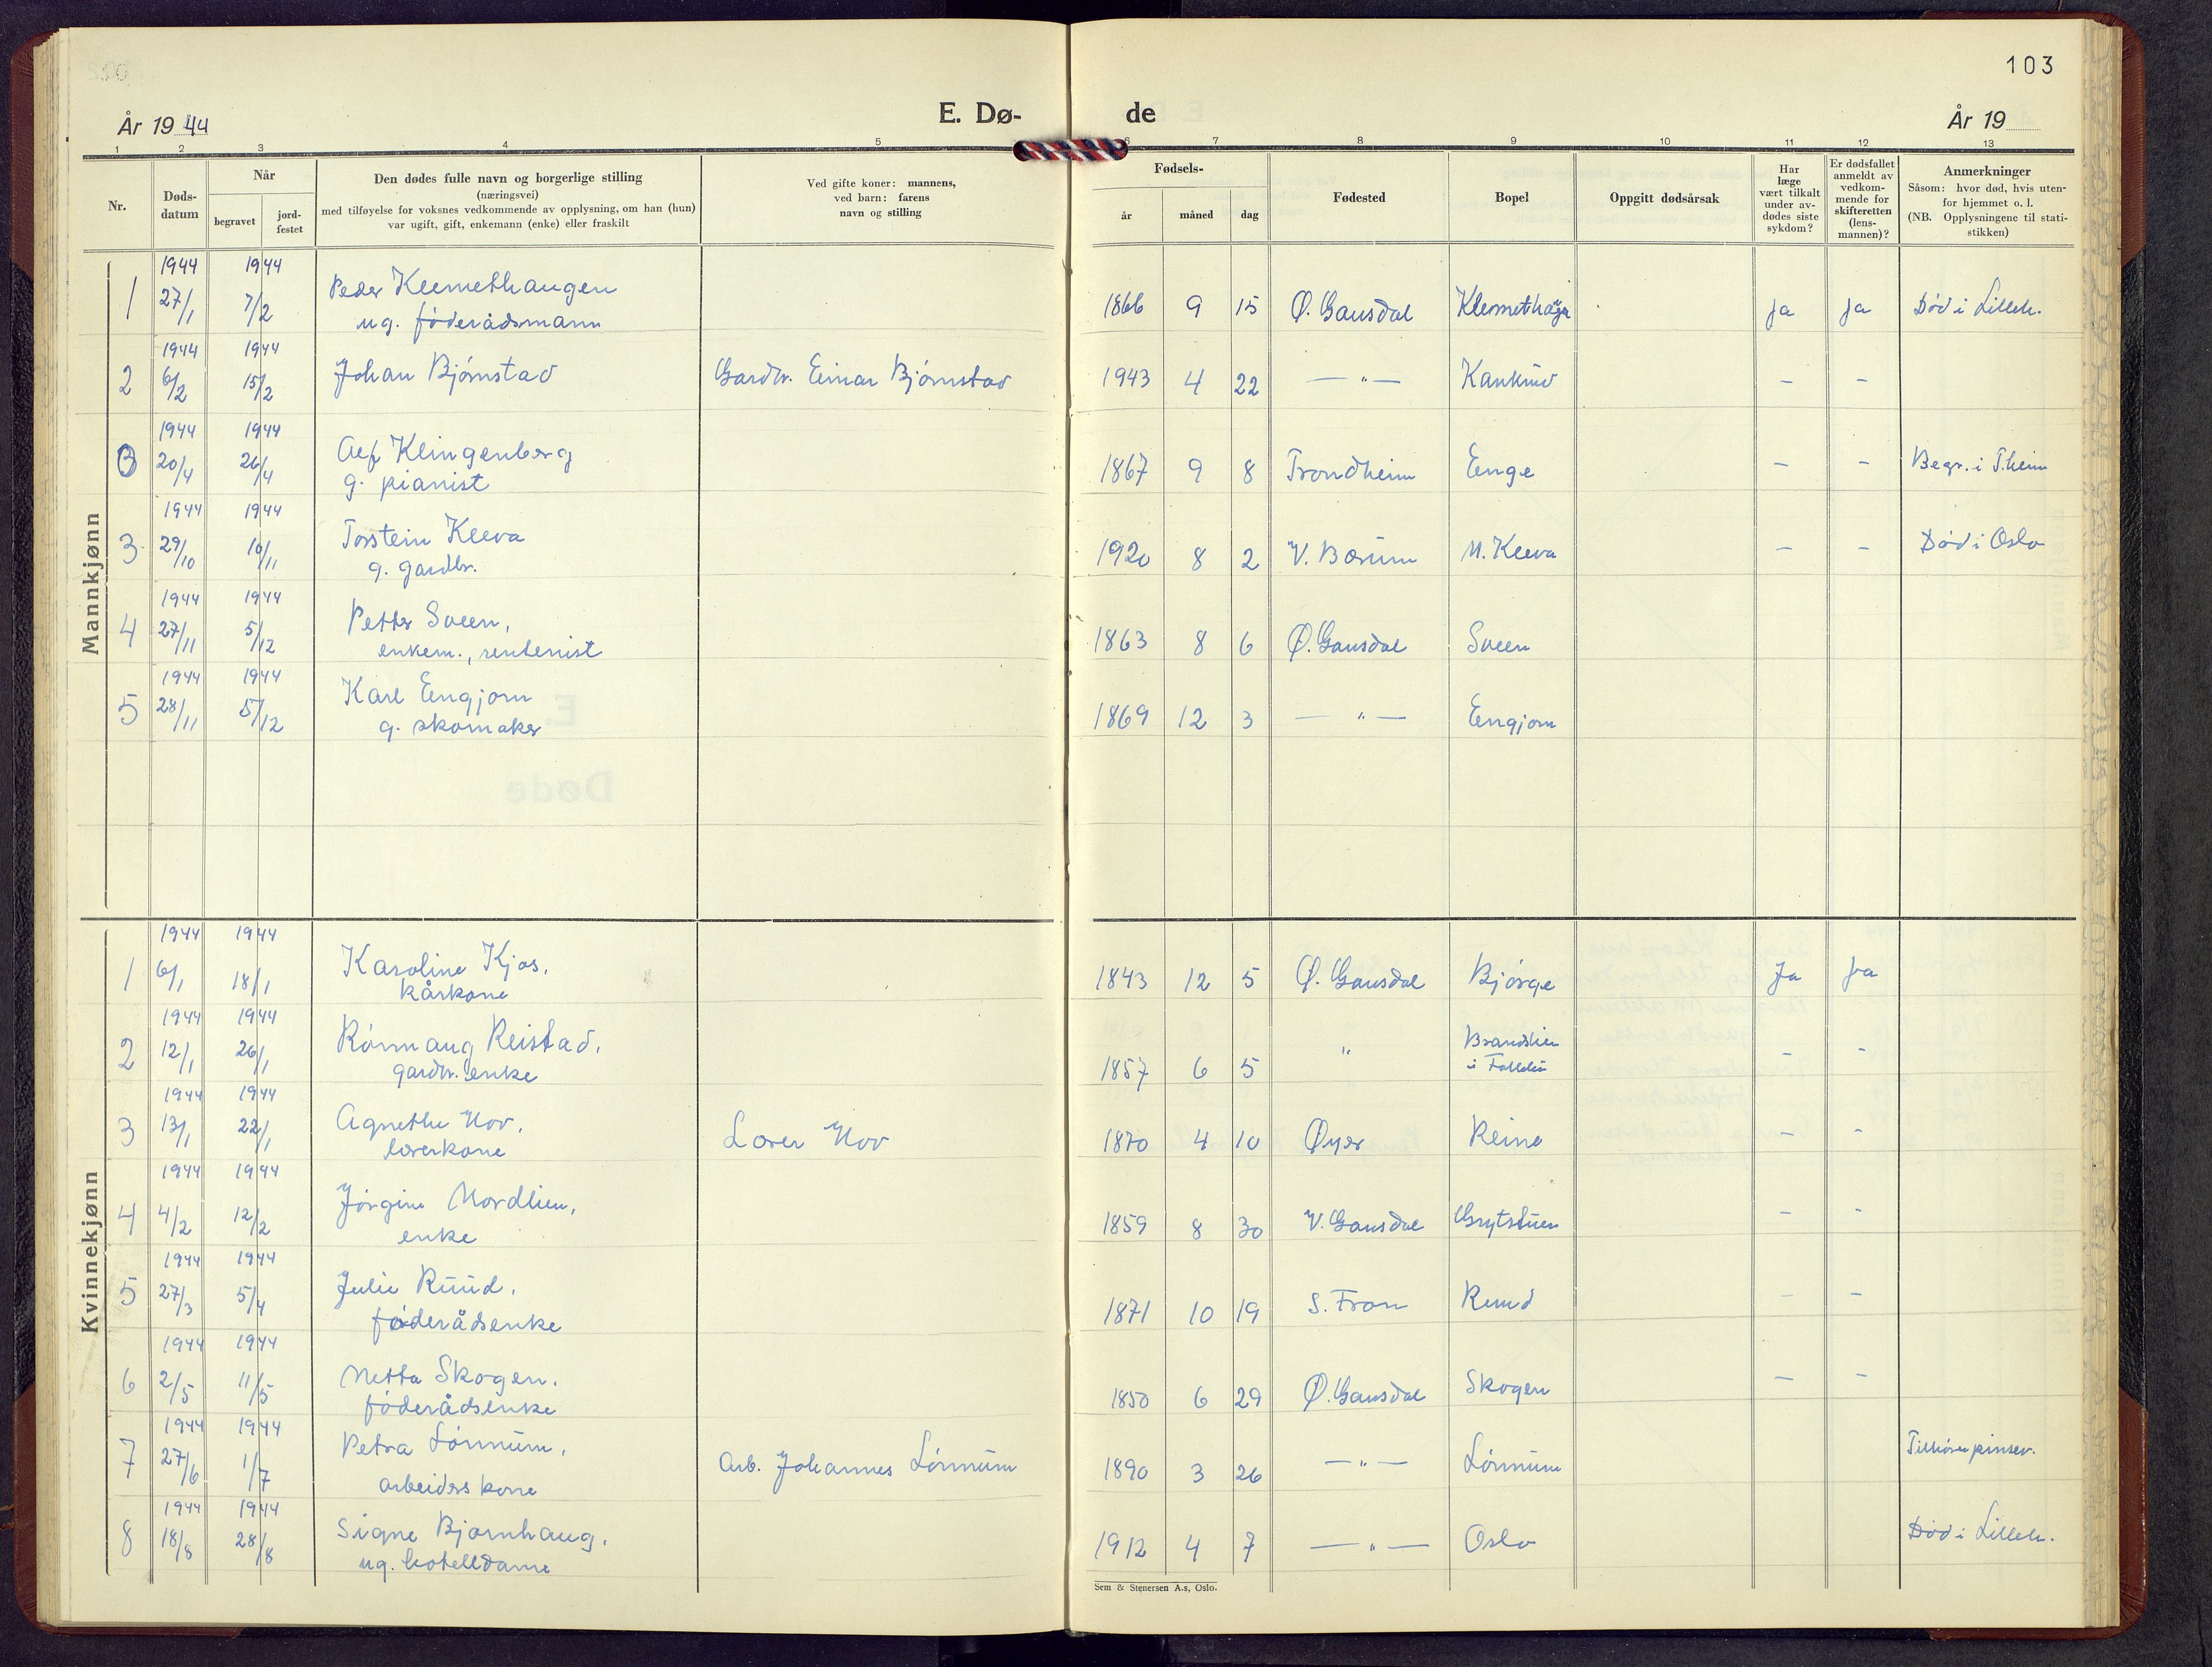 103
År 19 44
E. Dø-
de
År 19
1 2 3 4 5 6 7 8 9 10 11 12 13
Nr.
Døds-
datum
Når
begravet
jord-
festet
Den dødes fulle navn og borgerlige stilling
(næringsvei)
med tilføyelse for voksnes vedkommende av opplysning, om han (hun)
var ugift, gift, enkemann (enke) eller fraskilt
Ved gifte koner: mannens,
ved barn: farens
navn og stilling
Fødsels-
år
måned
dag
Fødested
Bopel
Oppgitt dødsårsak
Har
læge
vært tilkalt
under av-
dødes siste
sykdom?
Er dødsfallet
anmeldt av
vedkom-
mende for
skifteretten
(lens-
mannen)?
Anmerkninger
Såsom: hvor død, hvis uten-
for hjemmet o. l.
(NB. Opplysningene til stati-
stikken)
Mannkjønn
1944 1944
1 27/1 7/2 Peder Klemethaugen 1866 9 15 Ø. Gausdal Klemethaugen ja ja Død i Lilleh.
ug. føderådsmann
1944 1944
2 6/2 15/2 Johan Bjørnstad Gardbr. Einar Bjørnstad 1943 4 22 — " — Kankrud – –
1944 1944
20/4 26/4 Alf Klingenberg 1867 9 8 Trondheim Enge – – Begr. i T.heim
g. pianist
1944 1944
3 29/10 10/11 Torstein Kleva 1920 8 2 V. Bærum N. Kleva – – Død i Oslo
g. gardbr.
1944 1944
4 27/11 5/12 Petter Sveen, 1863 8 6 Ø. Gausdal Sveen
enkem., rentenist
1944 1944
5 28/11 5/12 Karl Engjom 1869 12 3 — " — Engjom
g. skomaker
Kvinnekjønn
1944 1944
1 6/1 18/1 Karoline Kjos, 1843 12 5 Ø. Gausdal Bjørge Ja ja
kårkone
1944 1944
2 12/1 26/1 Rønnaug Reistad, 1857 6 5 " Brandslien – –
gardbr. enke i Follebu
1944 1944
3 13/1 22/1 Agnethe Hov, Lærer Hov 1870 4 10 Øyer Kleine – –
lærerkone
1944 1944
4 4/2 12/2 Jørgine Nordlien, 1859 8 30 V. Gausdal Grytstuen – –
enke
1944 1944
5 27/3 5/4 Julie Ruud, 1871 10 19 S. Fron Ruud – –
føderådsenke
1944 1944
6 2/5 11/5 Netta Skogen, 1850 6 29 Ø. Gausdal Skogen – –
føderådsenke
1944 1944
7 27/6 1/7 Petra Lønnum, Arb. Johannes Lønnum 1890 3 26 — " — Lønnum Tilhører pinsev.
arbeiders kone
1944 1944
8 18/8 28/8 Signe Bjørnhaug, 1912 4 7 — " — Oslo Død i Lilleh.
ug. hotelldame
Sem & Stenersen A.s, Oslo.